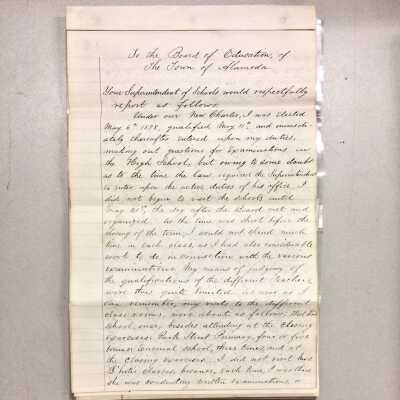 To the Board of Education, of
The Town of Alameda
Your Superintendent of Schools would respectfully
report as follows.
Under our New Charter, I was elected
May 6th 1878, qualified May 11th, and immedi-
ately thereafter entered upon my duties,
making out questions for Examinations in
the High School, but owing to some doubt
as to the time the law required the Superintendent
to enter upon the active duties of his office, I
did not begin to visit the schools until
May 21st, the day after the Board met and
organized. As the time was short before the
closing of the term, I could not spend much
time in each class, as I had also considerable
work to do, in connection with the various
examinations. My means of judging of
the qualifications of the different teachers
were thus quite limited. As near as I
can remember, my visits to the different
class rooms, were about as follows;
School, once, besides attending at the closing
exercises. Park Street Primary, four or five
times; school, three times, and at
the closing exercises. I did not visit
classes because, each time I was there
she was conducting written examinations